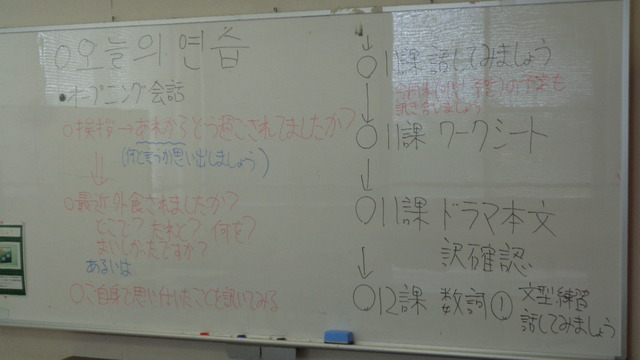 ○오늘의 연습
●オープニング会話
○挨拶→あれからどう過ごされてましたか?
(何と言うか思い出しましょう)
↓
○最近外食されましたか?
どこで? だれと? 何を?
おいしかったですか?
あるいは
○ご自身で思い付いたことを訊いてみる
↓
○11課 話してみましょう
の予定も
訳し合いましょう
↓
○11課 ワークシート
↓
○11課 ドラマ本文
訳確認
↓
○12課 数詞① 文型練習
話してみましょう